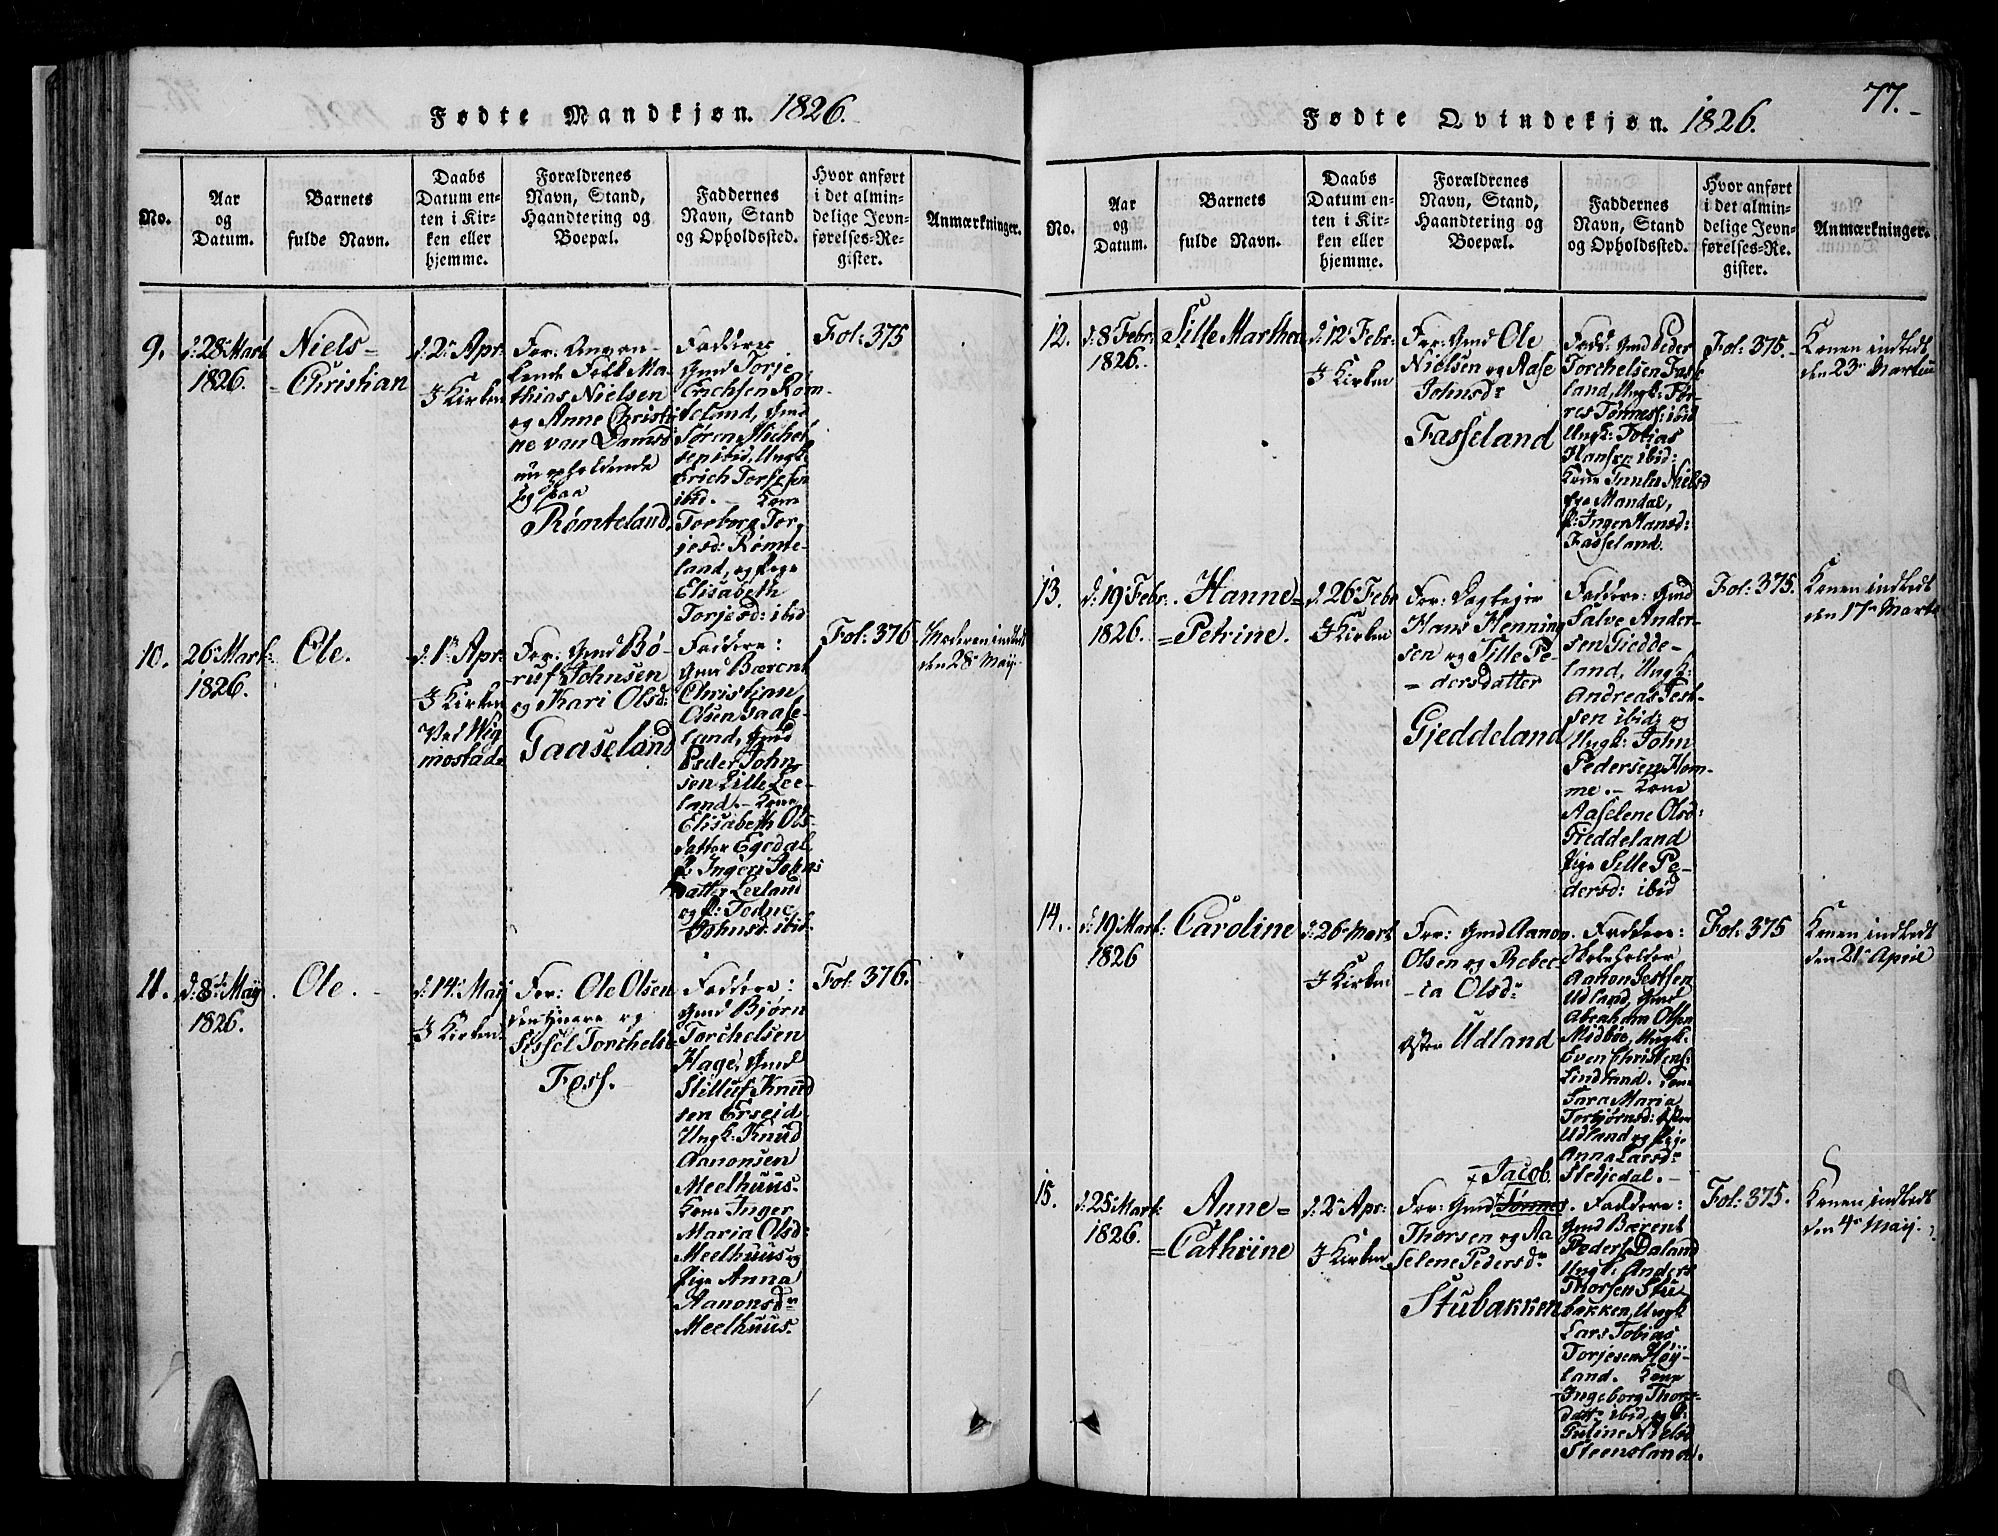 Fødte Mandkjøn. 1826.
No.
Aar
og
Datum.
Barnets
fulde Navn.
Daabs
Datum en-
ten i Kir-
ken eller
hjemme.
Forældrenes
Navn, Stand,
Haandtering og
Boepæl.
Faddernes
Navn, Stand
og Opholdssted.
Hvor anført
i det almin-
delige Jevn-
førelses-Re-
gister.
Anmærkninger.
9.
d: 28 Mart
1826.
Niels=
=Christian
d: 2 Apr.
I Kirken
For:
Folk Ma-
thias Nielsen
og Anne Christi-
ne van Dam
opholdende
sig paa
Rømteland.
Faddere
Gmd Torje
Erichsen Røm-
teland, Gmd
Søren Michel-
sen ibid, Ungk:
Erich Torjesen
ibid. – Kone
Torborg Tor-
jesd: Rømte-
land, og Pige
Elisabeth
Torjesd: ibid
Fol: 375
10.
26 Mart:
1826.
Ole.
d: 1 Apr.
I Kirken
Ved Wig-
mostad
For: Gmd Bø-
ruf Johnsen
og Kari Olsd:
Gaaseland
Faddere:
Gmd Bærent
Christian
Olsen Gaase-
land, Gmd
Peder John-
sen Lille Lee-
land. – Kone
Elisabeth Ols-
datter Egedal
P: Inger Johns
datter Leeland
og P: Todne
Johnsd: ibid.
Fol: 376
Moderen indledt
den 28 May.
11.
d: 8 May
1826.
Ole.
d: 14 May
I Kirken
For: Ole Olsen
den yngre og
Sissel Torchelsd
Foss.
Faddere:
Gmd Bjørn
Torchelsen
Hage, Gmd
Stilluf Knud
sen Erseid
Ungk: Knud
Aanonsen
Meelhuus.
Kone Inger
Maria Olsd:
Meelhuus og
Pige Anna
Aanonsdr
Meelhuus.
Fol: 376.
77.
Fødte Qvindekjøn. 1826.
No.
Aar
og
Datum.
Barnets
fulde Navn.
Daabs
Datum en-
ten i Kir-
ken eller
hjemme.
Forældrenes
Navn, Stand,
Haandtering og
Boepæl.
Faddernes
Navn, Stand
og Opholdssted.
Hvor anført
i det almin-
delige Jevn-
førelses-Re-
gister.
Anmærkninger.
12.
d: 8 Febr.
1826.
Sille Marthea
d: 12 Febr:
I Kirken
For: Gmd Ole
Nielsen og Aase
Johnsdr
Fasseland
Fadd: Gmd Peder
Torchelsen Fasse
land, Ungk: Tør-
res Tønnes: ibid
Ungk: Tobias
Hansen ibid:
Kone Nielsd
fra Mandal,
P: Inger Hansd:
Fasseland.
Fol: 375.
Konen indledt
den 23 Martii
13.
d: 19 Febr.
1826.
Hanne=
=Petrine.
d: 26 Febr
I Kirken
For:
Hans Henning
sen og Sille Pe-
=dersdatter
Gjeddeland
Faddere: Gmd
Salve Ander-
sen Gjedde-
land, Ungk:
Andreas Jest-
sen ibid, og
Ungk: John
Pedersen Hom-
me. – Kone
Aaselene Olsd:
Gjeddeland
Pige Sille Pe-
dersd: ibid
Fol: 375.
Konen indledt
den 17 Marti
14.
d: 19 Mart:
1826
Caroline
d: 26 Mart
I Kirken
For: Gmd Aanon
Olsen og Rebec-
-ca Olsdr
Øster Udland
Faddere:
Skoleholder
Aanon Jestsen
Udland, Gmd
Abraham Olsen
Midbøe, Ungk:
Even Christens:
Lindland. Kone
Sara Maria
Torbjørnsd: Øster
Udland og Pige
Anna Larsdr
Stedjedal. –
Fol: 375
Konen indledt
den 21 April
15.
d: 25 Mart:
1826.
Anne=
=Cathrine
d: 2 Apr:
I Kirken
Jacob
For: Gmd Tønnes
Thorsen og Aa-
selene Pedersdr
Stubakken
Faddere:
Gmd Bærent
Peders: Daland
Ungk: Anders
Thorsen Stu-
bakken, Ungk
Lars Tobias
Torjesen Høy-
land. Kone
Ingeborg Thors-
datr ibid, og P:
Guline Nielsd
Steensland.
Fol: 375.
Konen indledt
den 4 May.